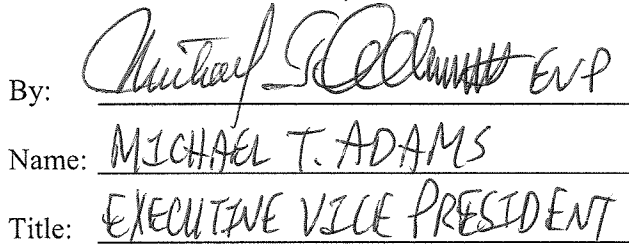 By: Michael T. Adams EVP
Name: MICHAEL T. ADAMS
Title: EXECUTIVE VICE PRESIDENT